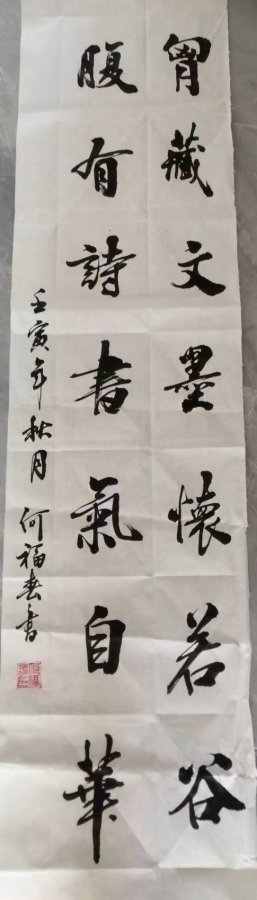 胷藏文墨懷若谷
腹有詩書氣自華
壬寅年秋月何福春書